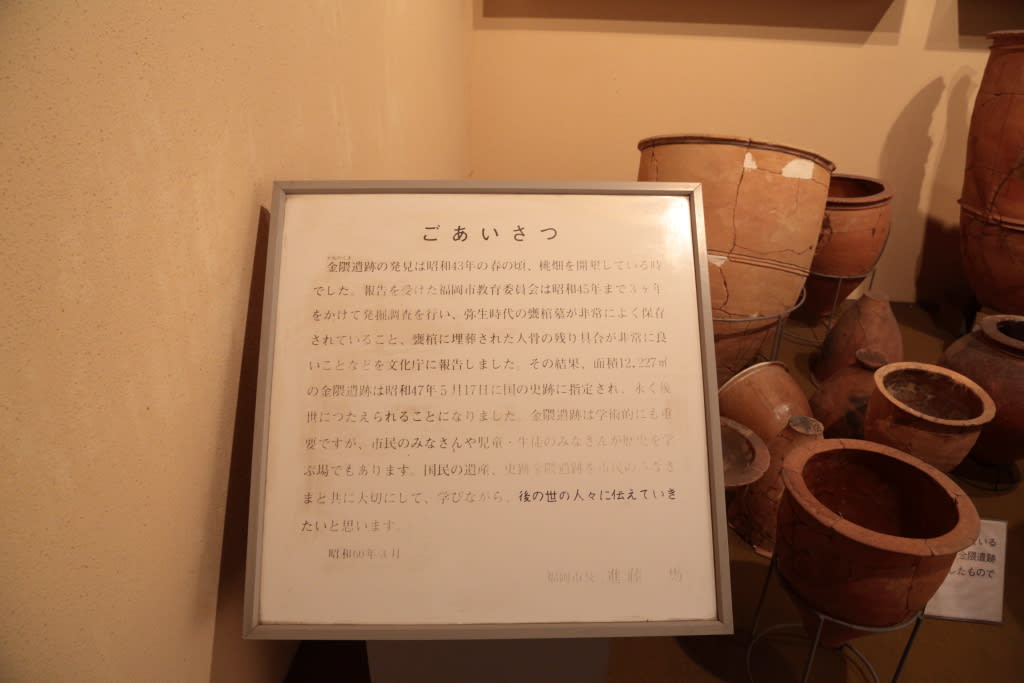 ごあいさつ
金隈遺跡の発見は昭和43年の春の頃、桃畑を開墾している時
でした。報告を受けた福岡市教育委員会は昭和45年まで3ヶ年
をかけて発掘調査を行い、弥生時代の甕棺墓が非常によく保存
されていること、甕棺に埋葬された人骨の残り具合が非常に良
いことなどを文化庁に報告しました。その結果、面積12,227㎡
の金隈遺跡は昭和47年5月17日に国の史跡に指定され、永く後
世につたえられることになりました。金隈遺跡は学術的にも重
要ですが、市民のみなさんや児童・生徒のみなさんが歴史を学
ぶ場でもあります。国民の遺産、史跡金隈遺跡を市民のみなさ
まと共に大切にして、学びながら、後の世の人々に伝えていき
たいと思います。
昭和60年3月
福岡市長 進藤
ている
金隈遺跡
したもので